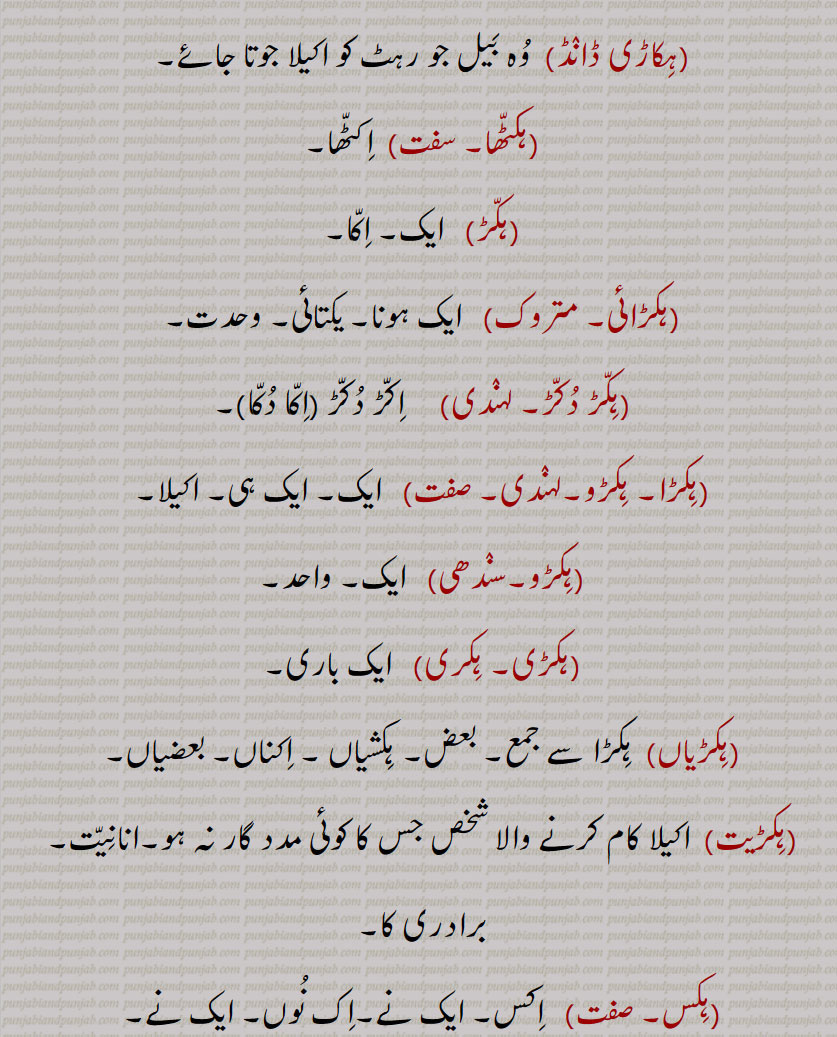 (ہِکاڑی ڈانڈ) وُہ بَیل جو رہٹ کو اکیلا جوتا جائے۔
(ہِکٹّھا۔ سفت) اِکٹّھا۔
(ہِکّڑ) ایک۔ اِکّا۔
(ہِکڑائی۔ متروک) ایک ہونا۔ یکتائی۔ وحدت۔
(ہِکّڑ دُکّڑ۔ لہندی) اِکّڑ دُکّڑ (اِکّا دُکّا)۔
(ہِکڑا۔ ہِکڑو۔لہندی۔ صفت) ایک۔ ایک ہی۔ اکیلا۔
(ہِکڑو۔سندھی) ایک۔ واحد۔
(ہِکڑی۔ ہِکری) ایک باری۔
(ہِکڑیاں) ہِکڑا سے جمع۔ بعض۔ ہِکشیاں ۔ اِکناں۔ بعضیاں۔
(ہِکڑیت) اکیلا کام کرنے والا شخص جس کا کوئی مدد گار نہ ہو۔انانِیّت۔
برادری کا۔
(ہِکس۔ صفت) اِکس۔ ایک نے۔اِک نُوں۔ ایک نے۔
punjabiandpunjab com